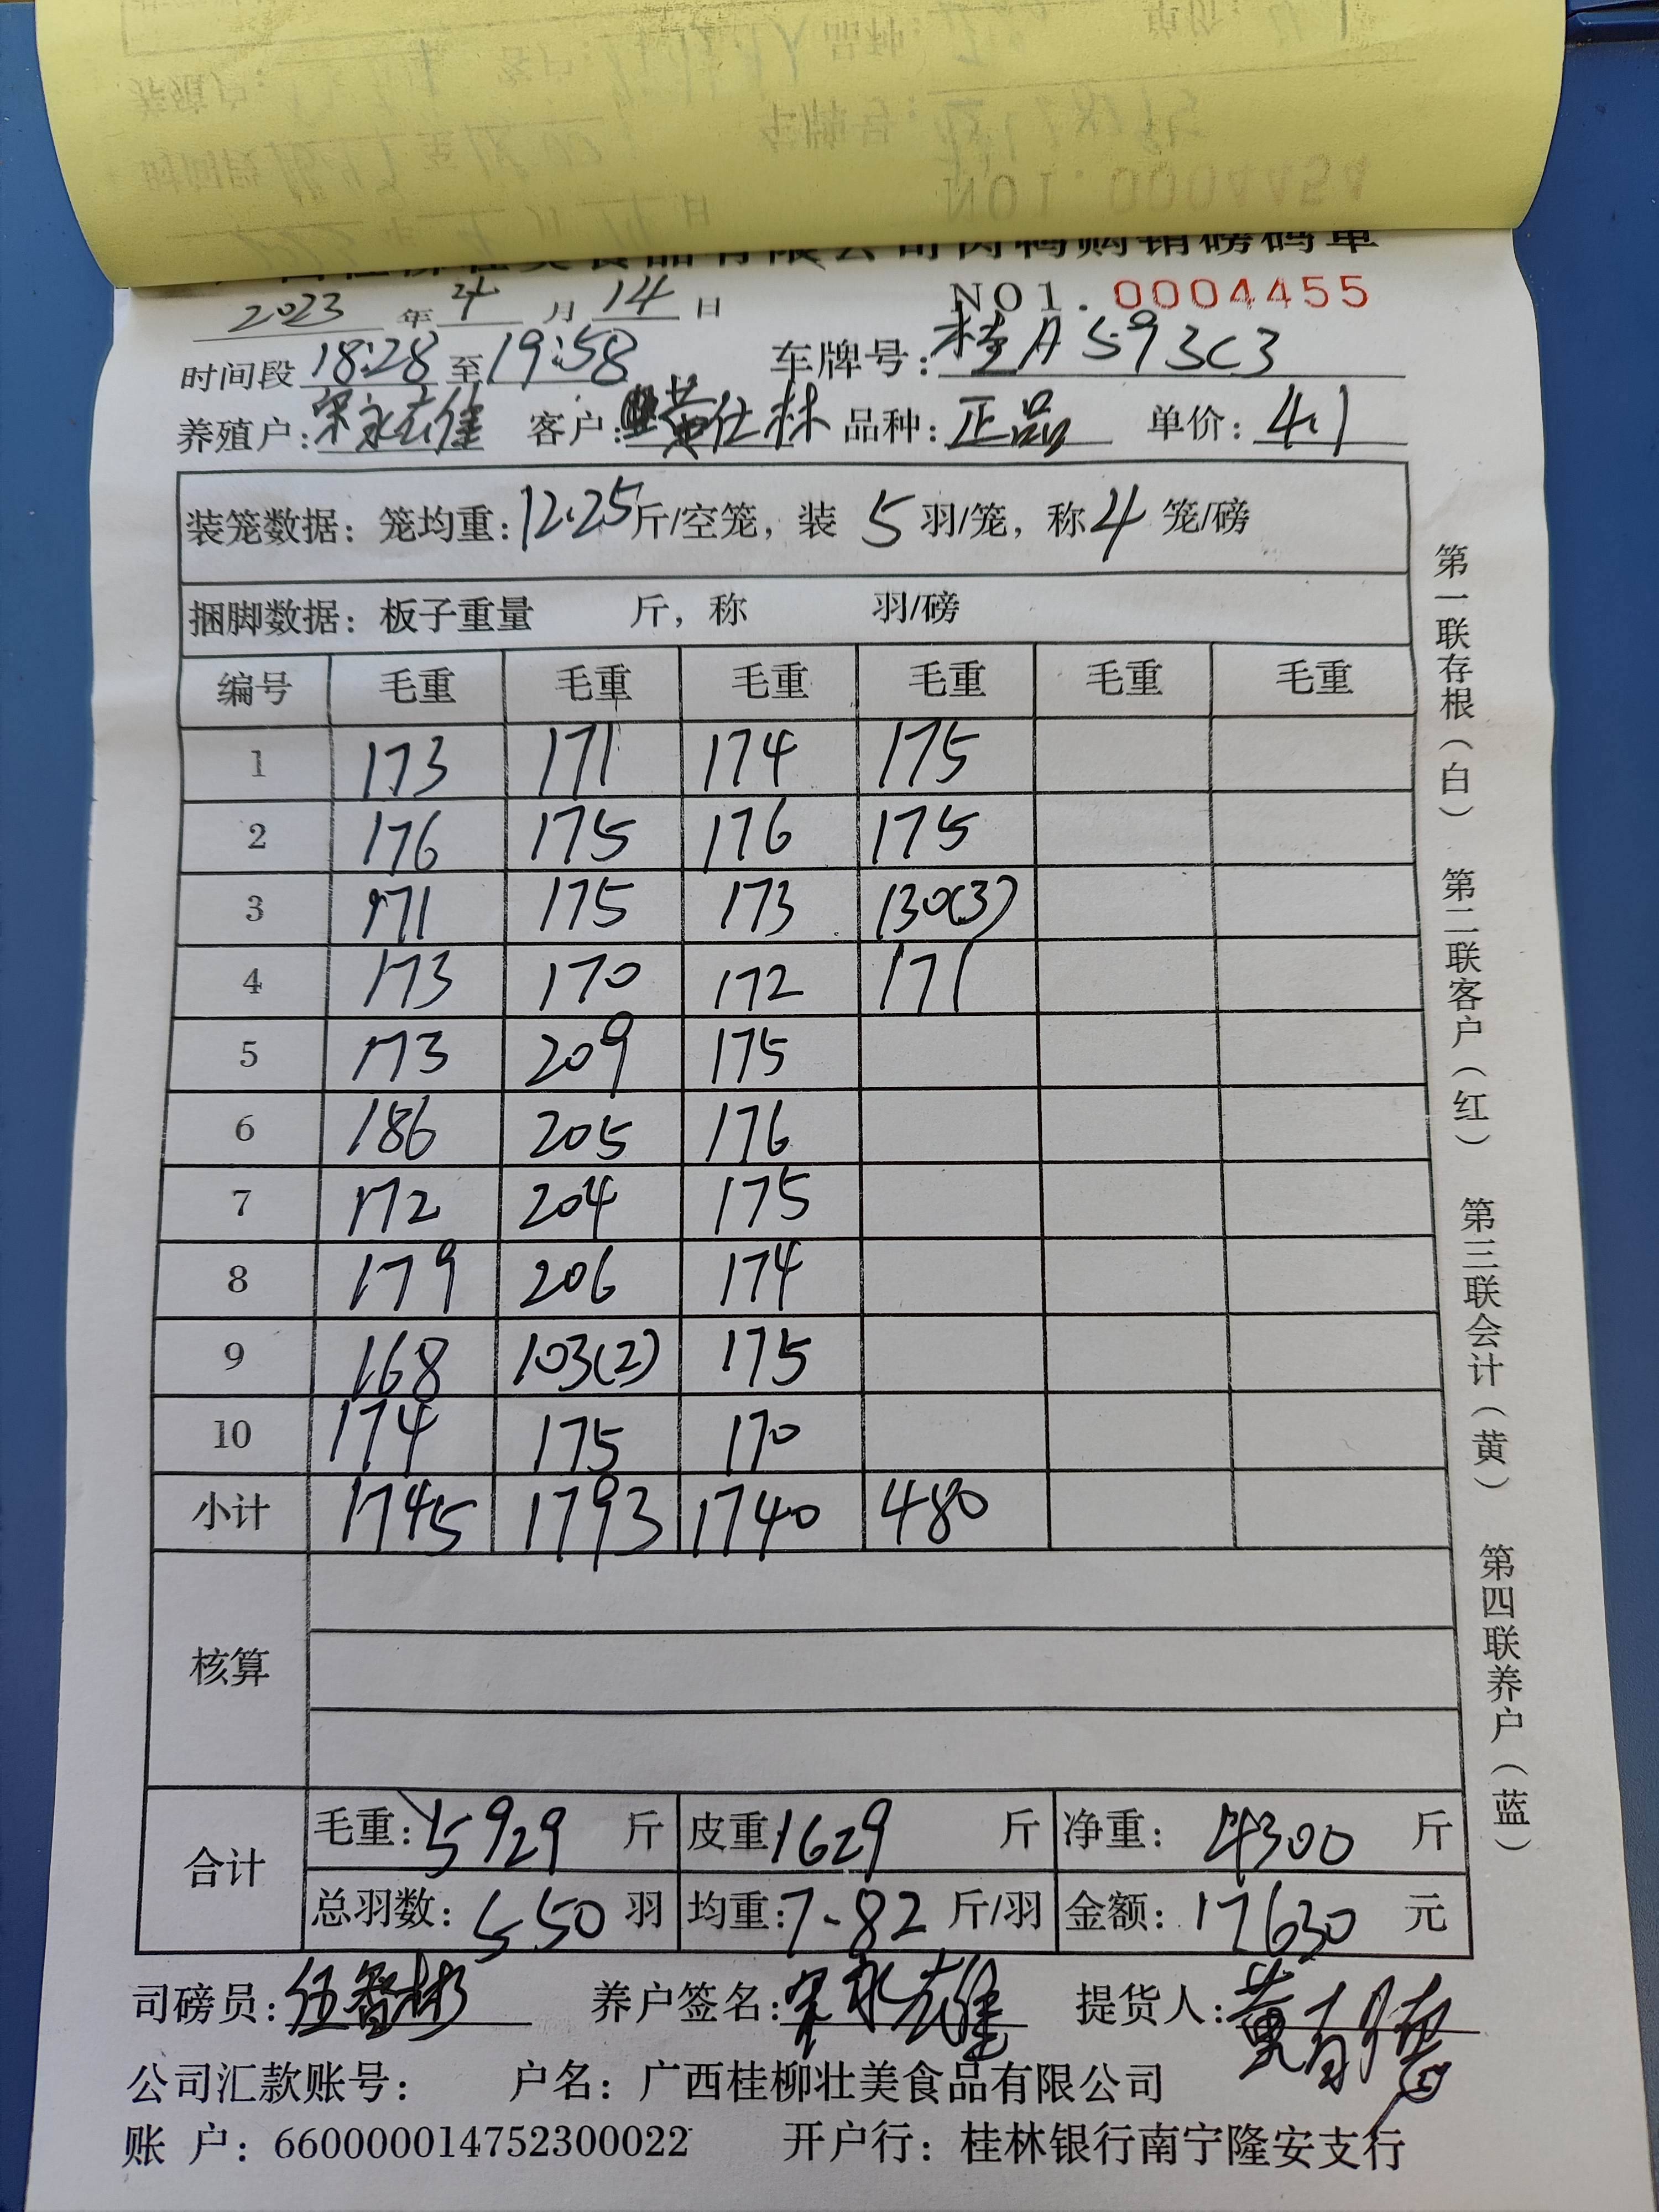 NO1.0004454
有限公司肉鸭购销磅码单
2023年4月14日 NO1.0004455
时间段18:28至19:58 车牌号:桂A593C3
养殖户:宋永雄 客户:黄仕林 品种:正品 单价:4.1
装笼数据:笼均重:12.25斤/空笼,装 5 羽/笼,称4 笼/磅
捆脚数据:板子重量 斤,称 羽/磅
编号 毛重 毛重 毛重 毛重 毛重 毛重
1 173 171 174 175
2 176 175 176 175
3 171 175 173 130(3)
4 173 170 172 171
5 173 209 175
6 186 205 176
7 172 204 175
8 179 206 174
9 168 103(2) 175
10 174 175 170
小计 1745 1793 1740 480
核算
合计
毛重:5929 斤 皮重:1629 斤 净重:4300 斤
总羽数:550 羽 均重:7.82 斤/羽 金额:17630 元
司磅员:伍智彬 养户签名:宋永雄 提货人:黄
公司汇款账号: 户名:广西桂柳壮美食品有限公司
账 户:660000014752300022 开户行:桂林银行南宁隆安支行
第一联存根(白) 第二联客户(红) 第三联会计(黄) 第四联养户(蓝)